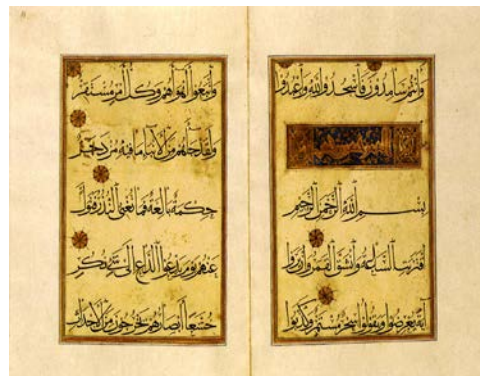 وأنتم سامدون فاسجدوا لله واعبدوا
بسم الله الرحمن الرحيم
اقتربت الساعة وانشق القمر وإن يروا
آية يعرضوا ويقولوا سحر مستمر وكذبوا
واتبعوا أهواءهم وكل أمر مستقر
ولقد جاءهم من الأنباء ما فيه مزدجر
حكمة بالغة فما تغني النذر فتول
عنهم يوم يدع الداع إلى شيء نكر
خشعا أبصارهم يخرجون من الأجداث